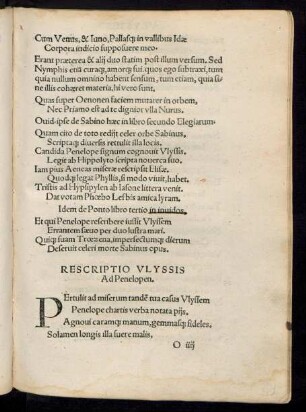 Cum Venus, & Iuno, Pallasq; in vallibus Idæ
Corpora iudicio supposuere meo.
Erant præterea & alij duo statim post illum versum. Sed
Nymphis enā curaq; amorq; fui. quos ego subtraxi, tum
quia nullum omnino habent sensum, tum etiam, quia si
ne illis cohæret materia, hi vero sunt.
Quas super Oenonen faciem mutarer in orbem,
Nec Priamo est ad te dignior vlla Nurus.
Ouid-ipse de Sabino hæc in libro secundo Elegiarum.
Quam cito de toto redijt celer orbe Sabinus,
Scriptaq; diuersis rettulit illa locis.
Candida Penelope signum cognouit Vlyssis,
Legit ab Hippolyto scripta nouerca suo.
Iam pius Aeneas miseræ rescripsit Elisæ.
Quodq; legat Phyllis, si modo viuit, habet.
Tristis ad Hypsipylen ab Iasone littera venit.
Dat votam Phœbo Lesbis amica lyram.
Idem de Ponto libro tertio in inuidos.
Et qui Penelope rescribere iussit Vlyssem
Errantem sæuo per duo lustra mari.
Quiq; suam Trœzena, imperfectumq; dierum
Deseruit celeri morte Sabinus opus.
RESCRIPTIO VLYSSIS
Ad Penelopen.
PErtulit ad miserum tandē tua casus Vlyssem
Penelope chartis verba notata pijs.
Agnoui caramq; manum, gemmasq; fideles.
Solamen longis illa fuere malis.
O iiij